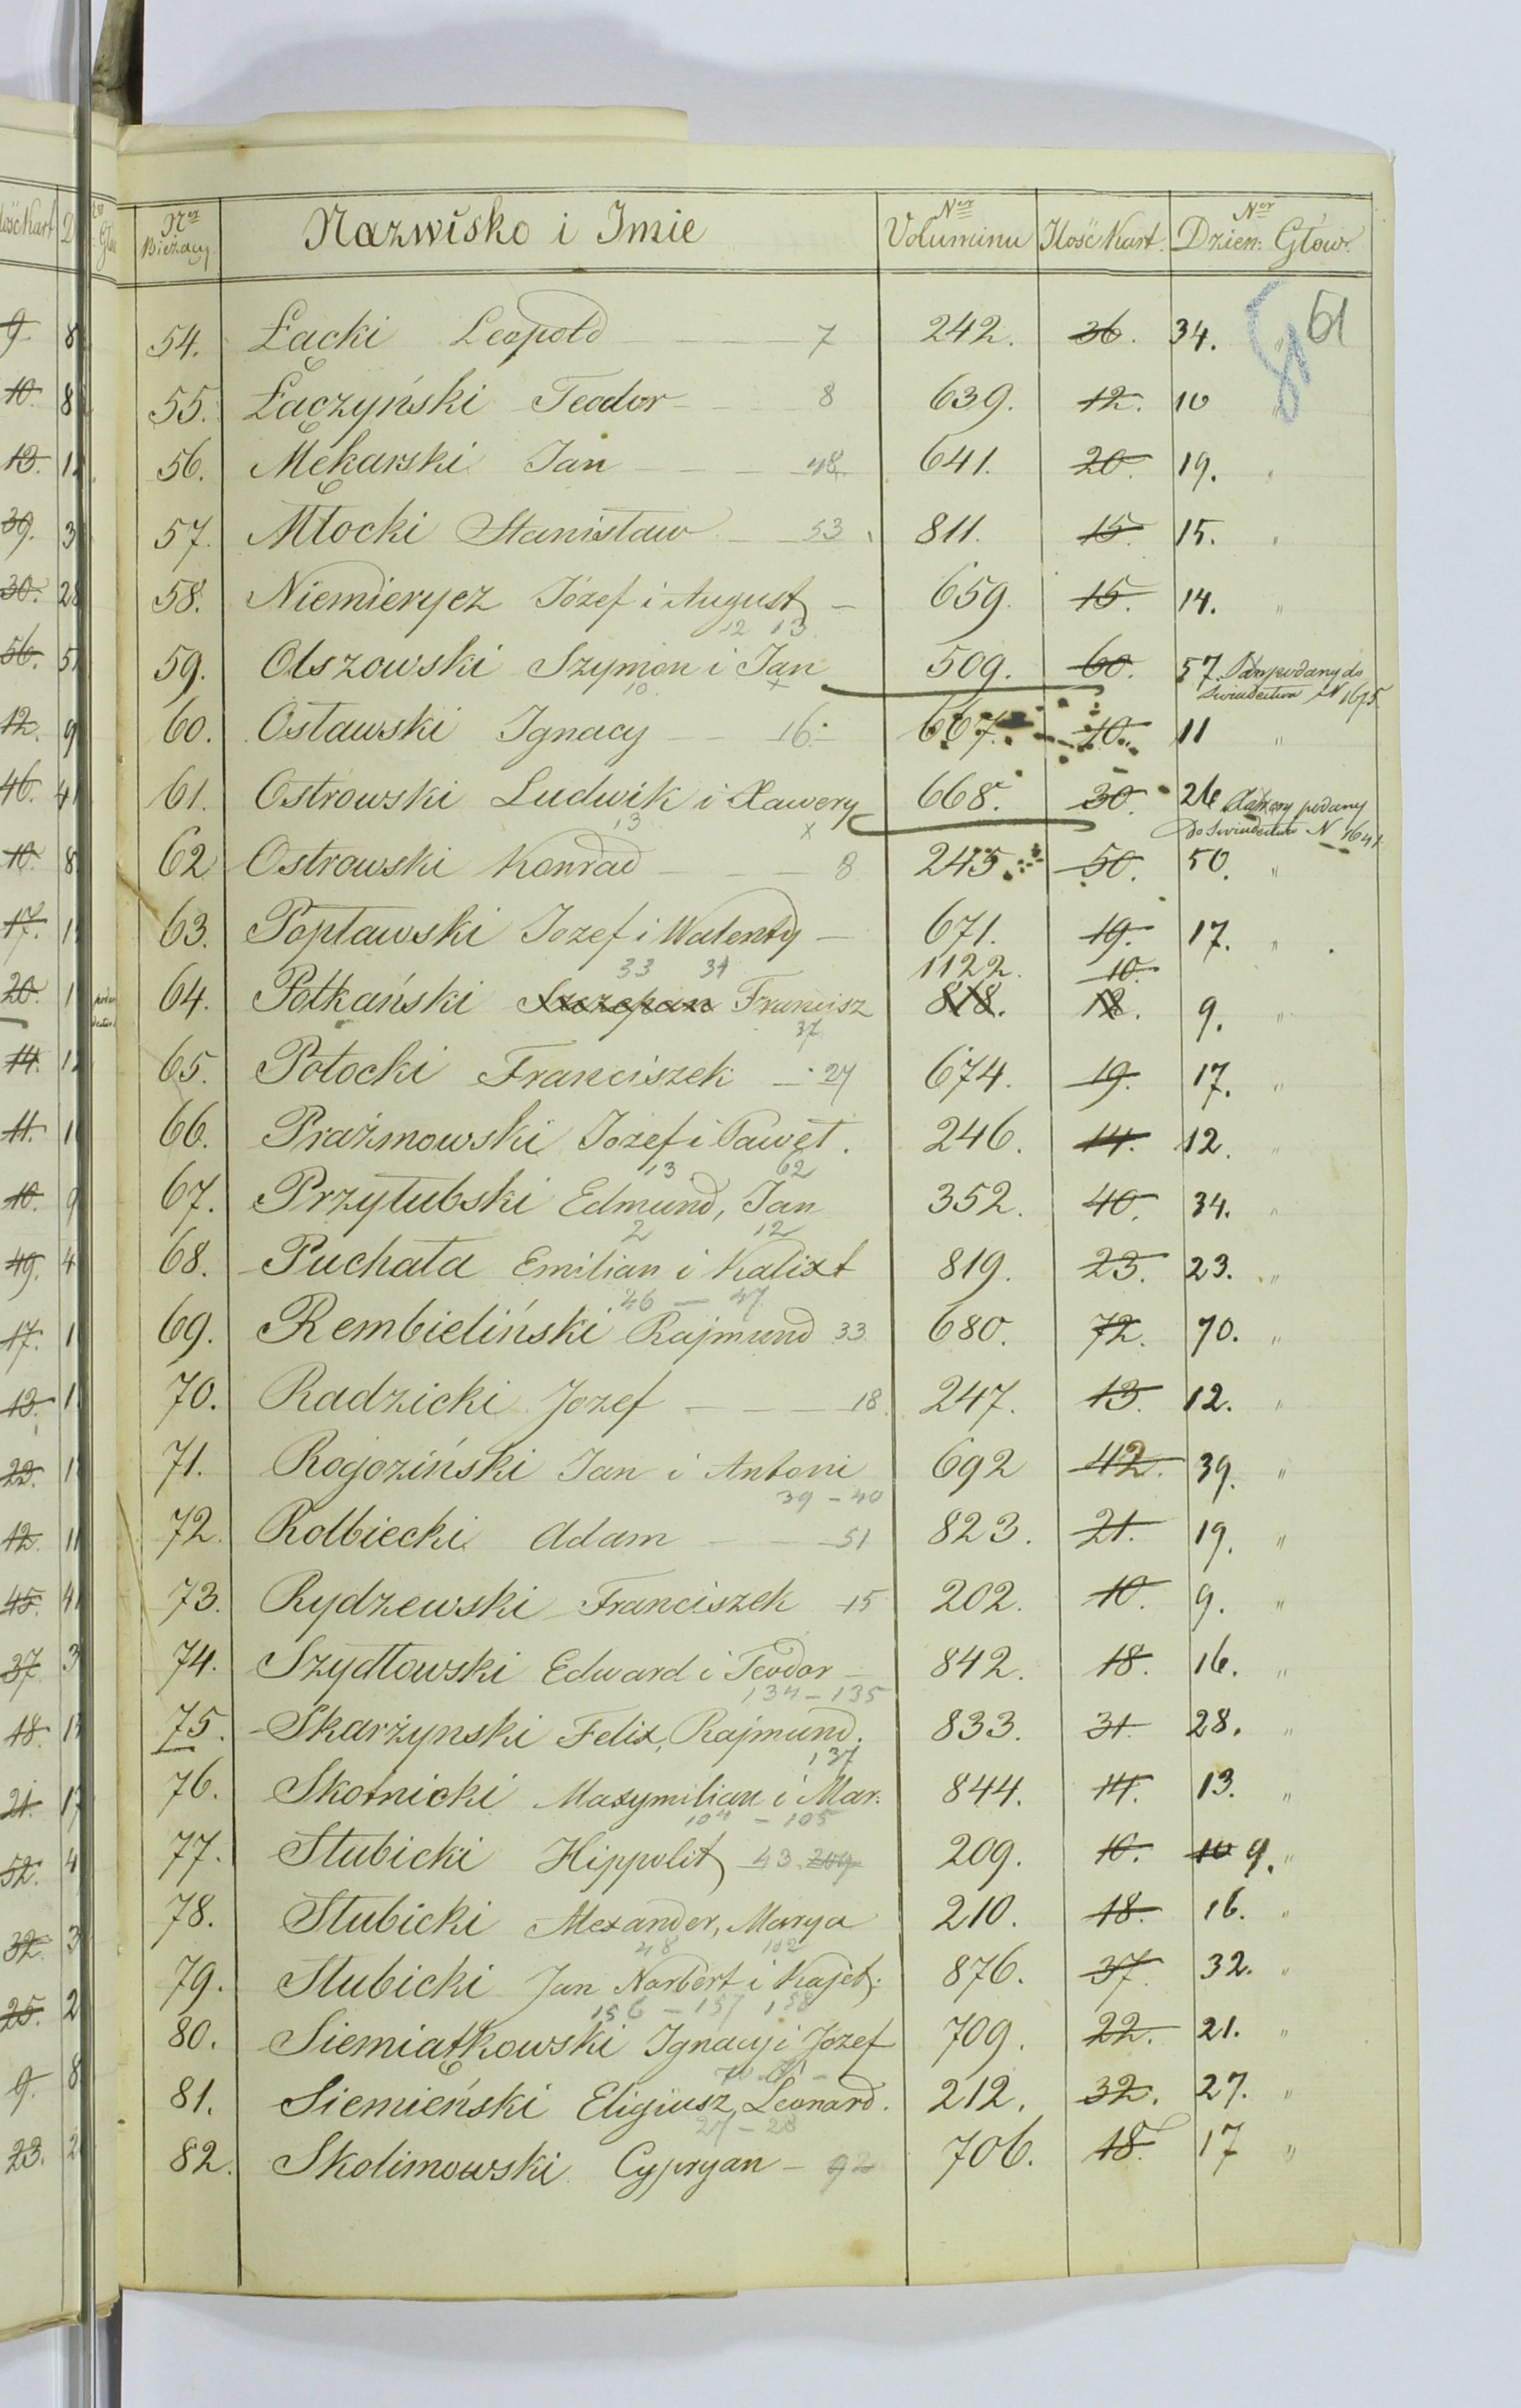 Ner Bieżący. Nazwisko i Imie Ner Voluminu Ilość Kart. Ner Dzien: Głów.
61
54. Łącki Leopold 7 242. 36. 34. "
55. Łączyński Teodor 8 639. 12. 10 "
56. Mękarski Jan 48 641. 20. 19. "
57. Młocki Stanisław 53 811. 15. 15. "
58. Niemierycz Józef i August 659. 15. 14. "
12 13
59. Olszowski Szymon i Jan 509. 60. 57. podany do
10. x Swiadectwa N 1675
60. Osławski Ignacy 16. 667. 10. 11 "
61. Ostrowski Ludwik i Xawery 668. 30. 26 podany
13 x Do Swiadectwa N 1641
62 Ostrowski Konrad 8 245. 50. 50. "
63. Popławski Jozef i Walenty 671. 19. 17. "
33 34 1122. 10.
64. Potkański Szczepan Francisz 818. 18. 9. "
37
65. Potocki Franciszek 27 674. 19. 17. "
66. Prażmowski Jozef i Paweł. 246. 14. 12. "
13 62
67. Przyłubski Edmund, Jan 352. 40. 34. "
2 12
68. Puchała Emilian i Kalixt 819. 23. 23. "
46 — 47
69. Rembieliński Rajmund 33. 680. 72. 70. "
70. Radzicki Jozef 18. 247. 13. 12. "
71. Rogoziński Jan i Antoni 692 42. 39. "
39 - 40
72. Rolbiecki Adam 51 823. 21. 19. "
73. Rydzewski Franciszek 15 202. 10. 9. "
74. Szydłowski Edward i Teodor 842. 18. 16. "
134 - 135
75. Skarżynski Felix, Rajmund. 833. 31. 28. "
137
76. Skotnicki Maxymilian i Mar. 844. 14. 13. "
104 - 105
77. Słubicki Hippolit 43 209 209. 10. 10 9. "
78. Słubicki Alexander, Marya 210. 18. 16. "
48 102
79. Słubicki Jan Norbert i Kajet. 876. 37. 32. "
156 - 157 158
80. Siemiątkowski Ignacy i Józef 709. 22. 21. "
81. Siemieński Eligiusz, Leonard. 212. 32. 27. "
27 - 28
82. Skolimowski Cypryan - 92 706. 18. 17 "